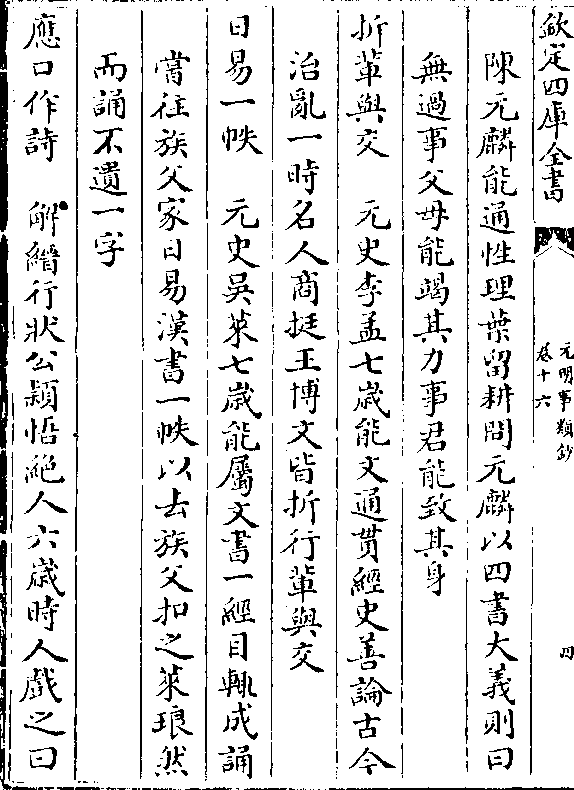 欽定四庫全書
元明事類鈔
卷十六
四
陳元麟能通性理葉留耕問元麟以四書大義則曰
無過事父母能竭其力事君能致其身
折輩與交　元史李孟七歲能文通貫經史善論古今
治亂一時名人商挺王博文皆折行輩與交
日易一帙　元史吳萊七歲能屬文書一經目輒成誦
嘗往族父家日易漢書一帙以去族父扣之萊琅然
而誦不遺一字
應口作詩　解縉行狀公穎悟絶人六歲時人戲之曰